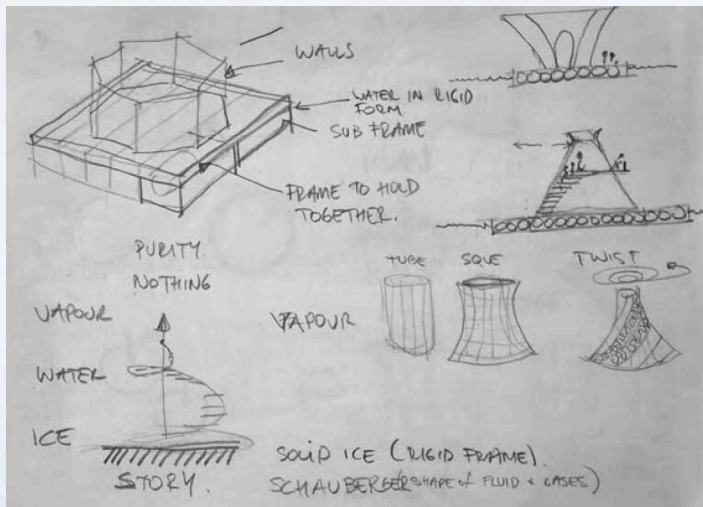 WALLS
WATER IN RIGID
FORM
SUB FRAME
FRAME TO HOLD
TOGETHER.
PURITY
NOTHING
VAPOUR
WATER
ICE
STORY.
VAPOUR
TUBE
SQUE
TWIST
SOLID ICE (RIGID FRAME).
SCHAUBERGER (SHAPE of FLUID & GASES)